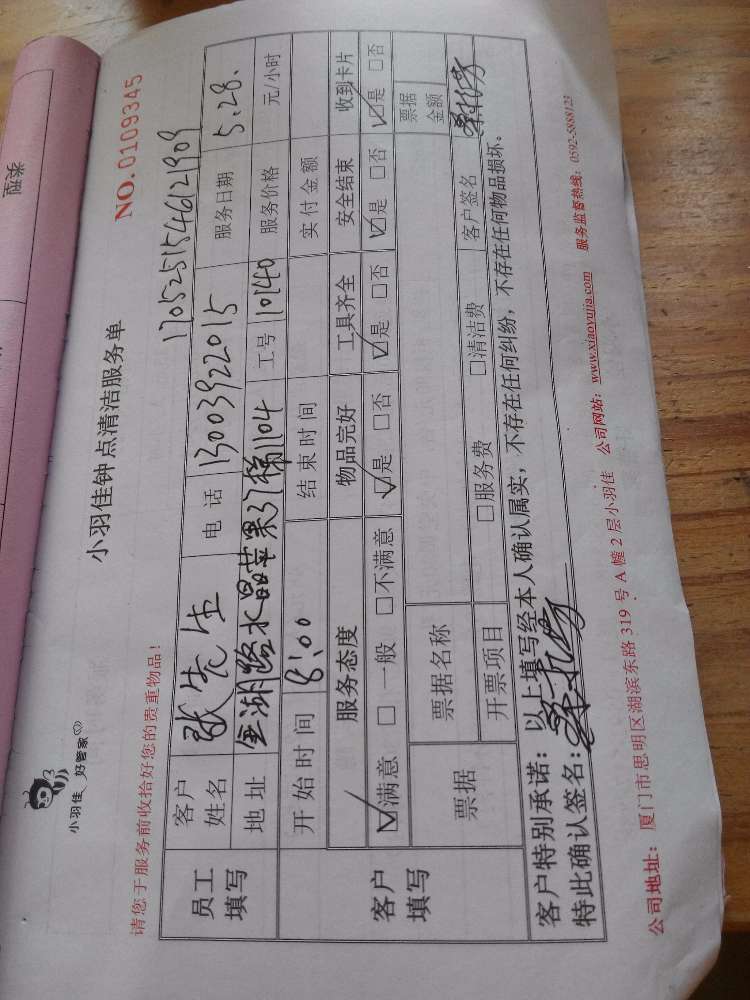 小羽佳 好管家
小羽佳钟点清洁服务单
NO.0109345
请您于服务前收拾好您的贵重物品！
1705251546121909
员工填写
客户姓名 张先生 电话 13003922015 服务日期 5.28.
地址 金湖路水晶苹果37梯104 工号 10140 服务价格 元/小时
客户填写
开始时间 8:00 结束时间 实付金额
服务态度 物品完好 工具齐全 安全结束 收到卡片
☑满意 □一般 □不满意 ☑是 □否 ☑是 □否 ☑是 □否 ☑是 □否
票据 票据名称 票据金额
开票项目 □服务费 □清洁费 客户签名
客户特别承诺：以上填写经本人确认属实，不存在任何纠纷，不存在任何物品损坏。
特此确认签名：
公司地址：厦门市思明区湖滨东路319号A幢2层小羽佳 公司网站：www.xiaoyujia.com 服务监督热线：0592-5888123